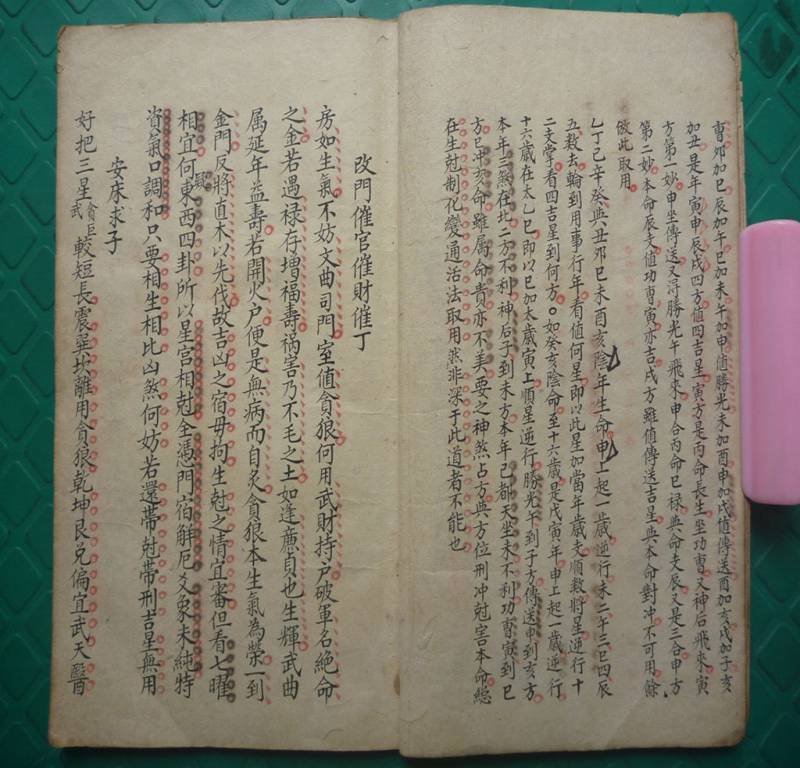 曺夘加巳辰加午巳加未午加申值勝光未加酉申加戌值傳送酉加亥戌加子亥
加丑是年寅申辰戌四方值四吉星寅方是丙命長生坐功曺又神后飛來寅
方第一妙申坐傳送又淂勝光午飛來申合丙命巳禄與命支辰又是三合申方
第二妙本命辰支值功曺寅亦吉戌方雖值傳送吉星與本命對冲不可用餘
倣此取用
乙丁己辛癸與丑夘巳未酉亥陰年生命申上起一歲逆行未二午三巳四辰
五数去輪到用事行年看值何星即以此星加當年歲支順数將星逆行十
二支掌看四吉星到何方。如癸亥陰命至十六歲是戊寅年申上起一歲逆行
十六歲在太乙巳即以巳加太歲寅上順星逆行勝光午到子方傳送申到亥方
本年三煞在北二方不利神后子到未方本年己都天坐未不利功曺寅到巳
方巳冲亥命雖属命貴亦不美要之神煞占方與方位刑冲尅害本命總
在生尅制化變通活法取用然非深于此道者不能也
改門催官催財催丁
房如生氣不妨文曲司門室值貪狼何用武財持户破軍名絶命
之金若遇禄存增福壽禍害乃不毛之土如逢廉貞也生輝武曲
属延年益壽若開火户便是無病而自炙貪狼本生氣為榮一到
金門反將直木以先伐故吉凶之宿毋拘生尅之情宜審但看七曜
相宜何東西四卦所以星宫相尅全憑門宿觧厄爻象未純特
資氣口調和只要相生相比凶煞何妨若還帶尅帶刑吉星無用
安床求子
好把三星貪巨武較短長震巽坎離用貪狼乾坤艮兑偏宜武天醫